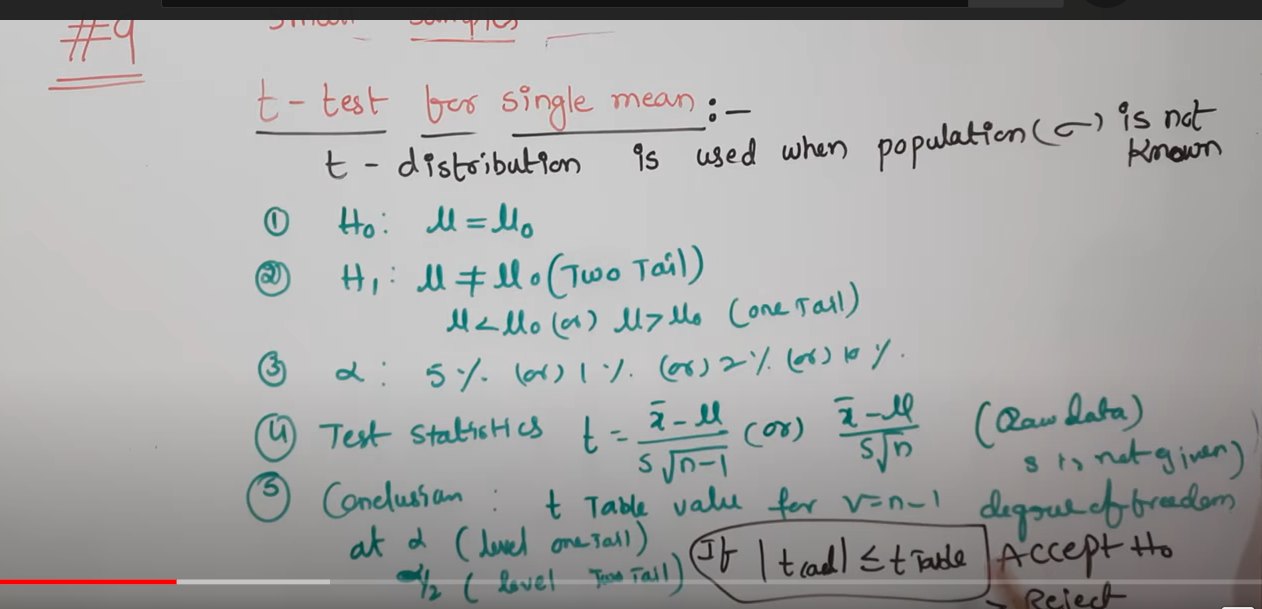 #9
Small Samples
t - test for single mean :-
t - distribution is used when population (σ) is not known
① H₀: μ = μ₀
② H₁: μ ≠ μ₀ (Two Tail)
μ < μ₀ (or) μ > μ₀ (one Tail)
③ α: 5 %. (or) 1 %. (or) 2 % (or) 10 %.
④ Test Statistics t = x̄ - μ / s √n-1 (or) x̄ - μ / s √n (Raw data) s is not given)
⑤ Conclusian : t Table value for v = n-1 degree of freedom
at α (level one Tail) If |t cal| ≤ t Table Accept H₀
α/2 (level Two Tail) > Reject